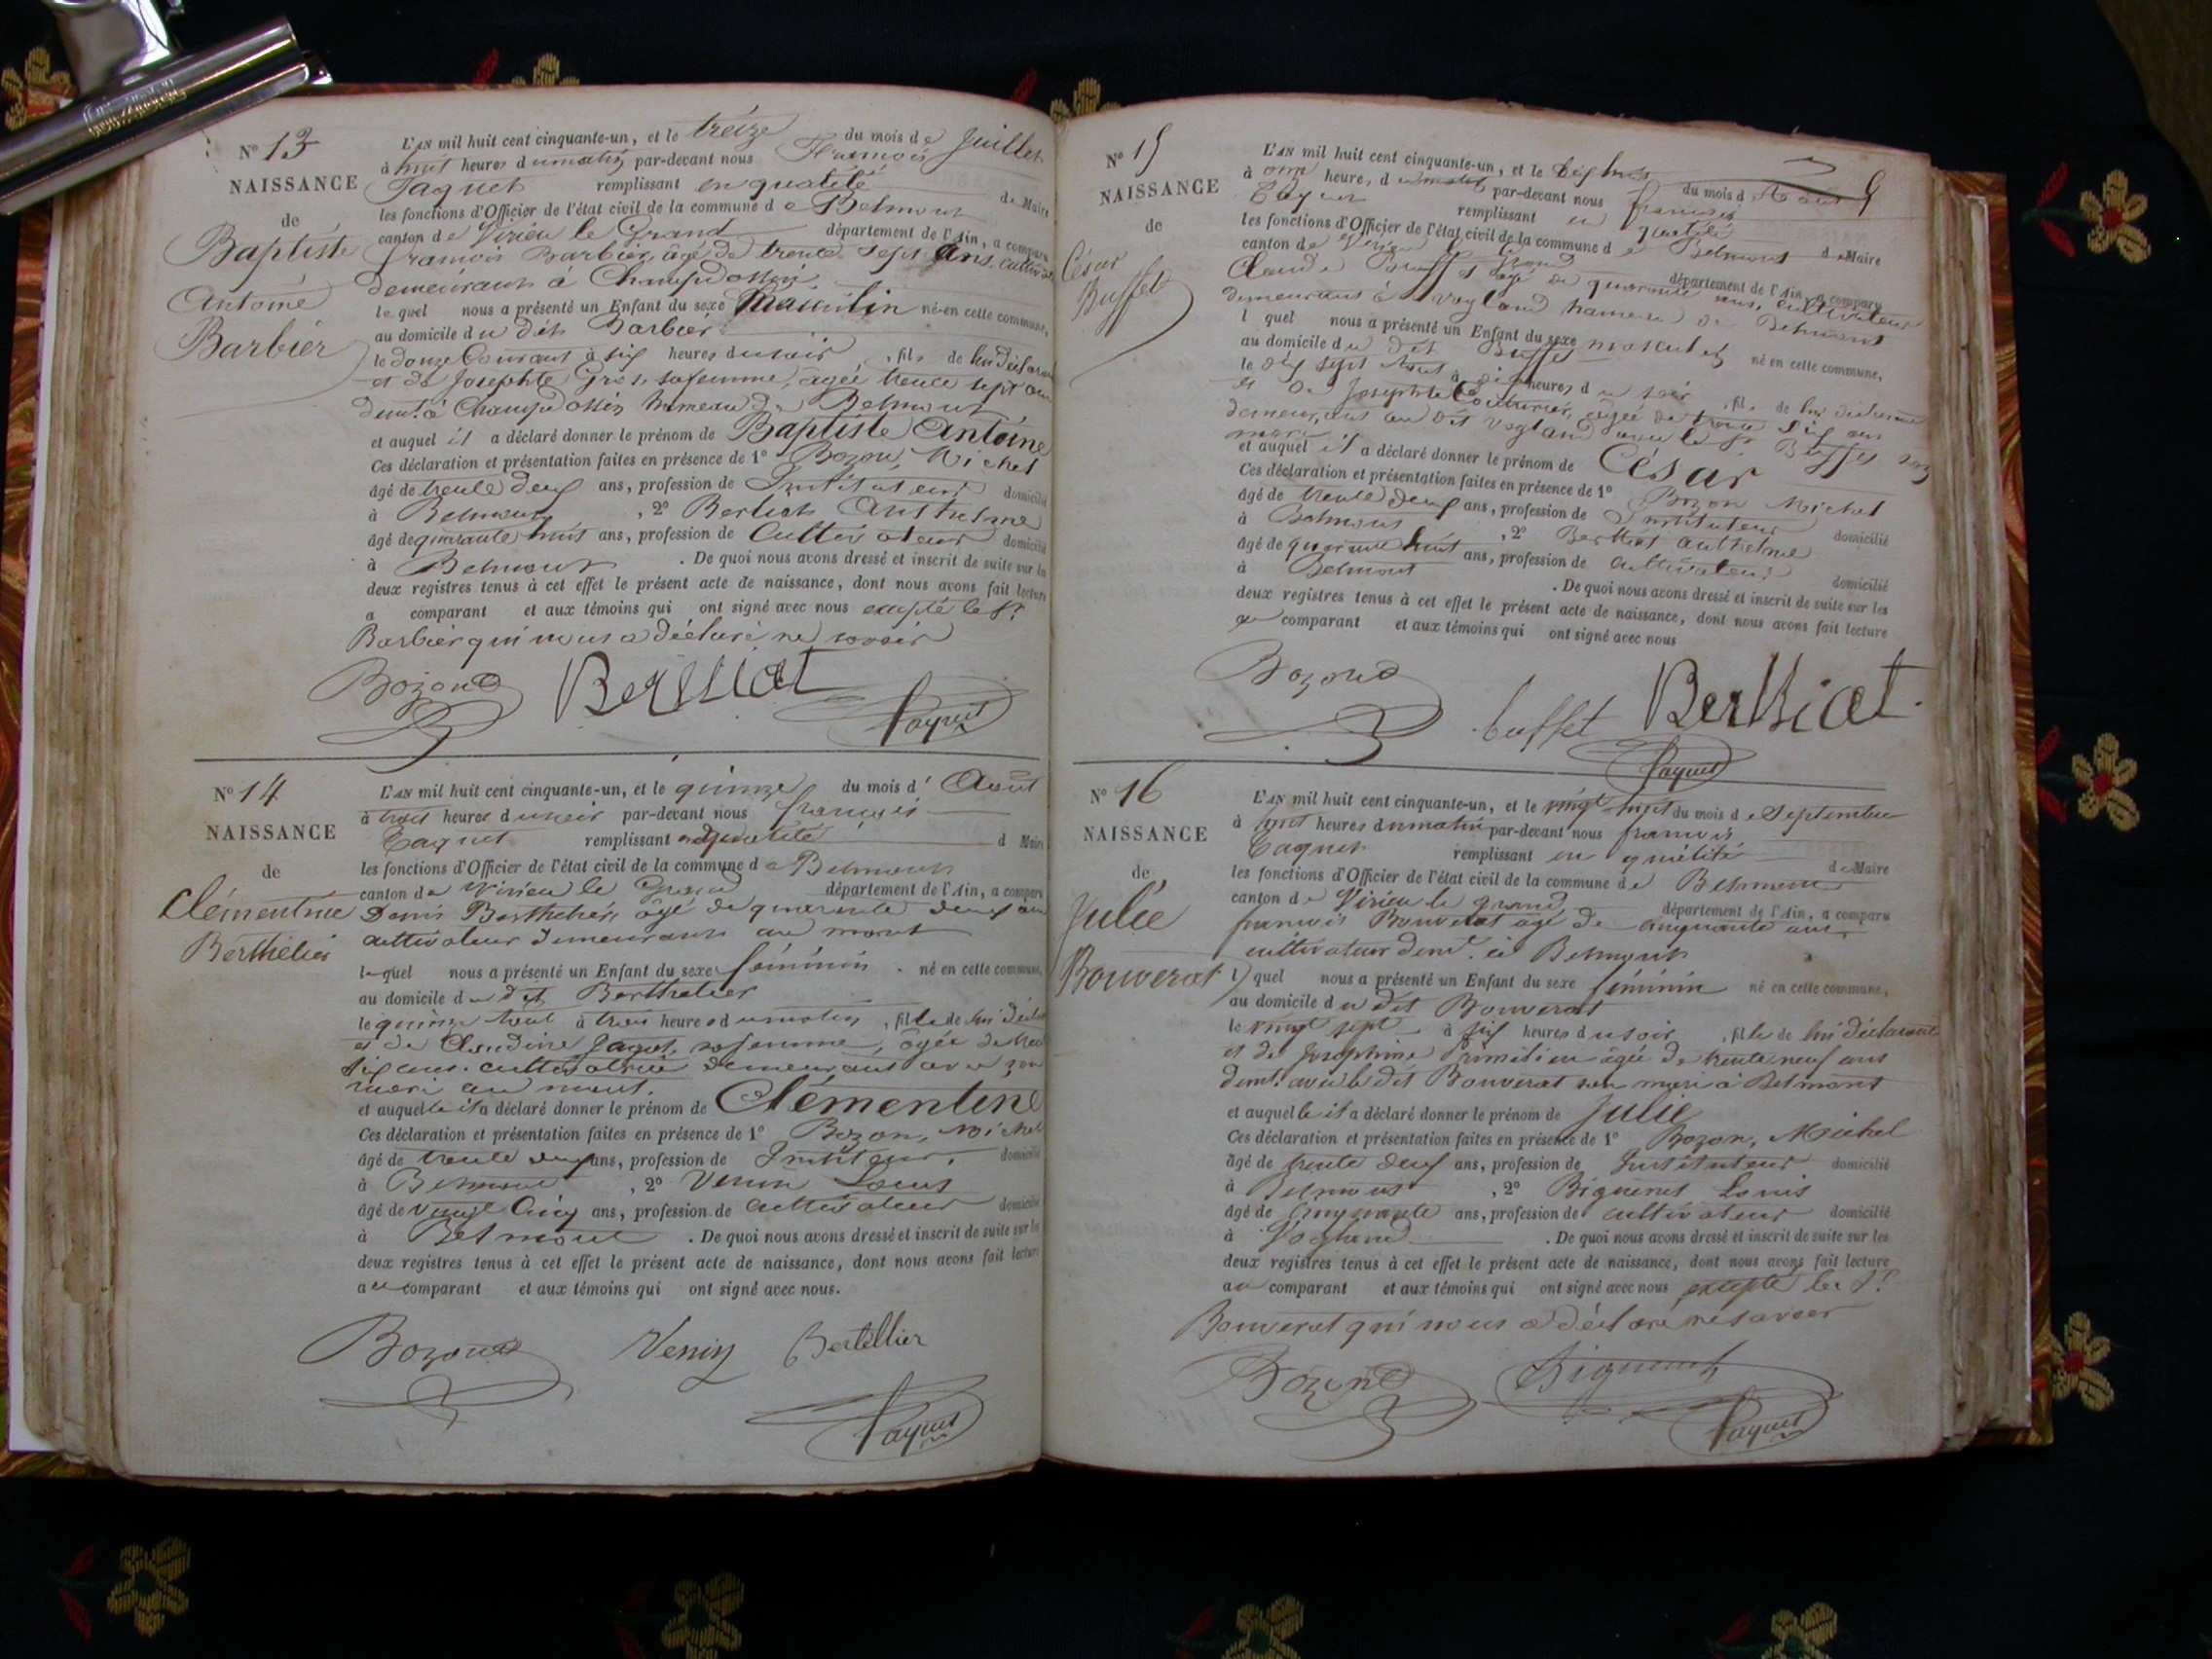 N° 13
NAISSANCE
de
Baptiste
Antoine
Barbier
L'AN mil huit cent cinquante-un, et le treize du mois de Juillet
à huit heures du matin par-devant nous François
Paquet remplissant en qualité de Maire
les fonctions d'Officier de l'état civil de la commune de Belmont
canton de Virieu le Grand département de l'Ain, a comparu
François Barbier, âgé de trente sept ans, cultivateur
demeurant à Champdossin
lequel nous a présenté un Enfant du sexe Masculin né en cette commune,
au domicile du dit Barbier
le douze Courant à six heures du soir, fils de lui déclarant
et de Josephte Gros, sa femme, agée trente sept ans
demt. à Champdossin hameau de Belmont
et auquel il a déclaré donner le prénom de Baptiste Antoine
Ces déclaration et présentation faites en présence de 1° Bozon, Michel
âgé de trente deux ans, profession de Instituteur domicilié
à Belmont, 2° Berliat Anthelme
âgé de quarante huit ans, profession de Cultivateur domicilié
à Belmont. De quoi nous avons dressé et inscrit de suite sur les
deux registres tenus à cet effet le présent acte de naissance, dont nous avons fait lecture
a comparant et aux témoins qui ont signé avec nous excepté le Sr.
Barbier qui nous a déclaré ne savoir
Bozon Berthiat
Paquet
N° 14
NAISSANCE
de
Clémentine
Berthelier
L'AN mil huit cent cinquante-un, et le quinze du mois d' Août
à trois heures du soir par-devant nous françois
Paquet remplissant en qualité d Maire
les fonctions d'Officier de l'état civil de la commune de Belmont
canton de Virieu le Grand département de l'Ain, a comparu
Denis Berthelier, âgé de quarante deux ans
cultivateur demeurant au mont
lequel nous a présenté un Enfant du sexe féminin né en cette commune,
au domicile du dit Berthelier
le quinze Aout à trois heures du matin, fille de lui déclarant
et de Claudine Jaquet, sa femme, agée de trente
six ans. cultivatrice demeurant avec son
mari au mont.
et auquelle il a déclaré donner le prénom de Clémentine
Ces déclaration et présentation faites en présence de 1° Bozon, Michel
âgé de trente deux ans, profession de Instituteur, domicilié
à Belmont, 2° Venin Louis
âgé de vingt Cinq ans, profession de cultivateur domicilié
à Belmont. De quoi nous avons dressé et inscrit de suite sur les
deux registres tenus à cet effet le présent acte de naissance, dont nous avons fait lecture
au comparant et aux témoins qui ont signé avec nous.
Bozon Venin Bertellier
Paquet
N° 15
NAISSANCE
de
César
Buffet
L'AN mil huit cent cinquante-un, et le dix huit du mois d Aout
à onze heures du matin par-devant nous françois
Paquet remplissant en qualité de Maire
les fonctions d'Officier de l'état civil de la commune de Belmont
canton de Virieu le Grand département de l'Ain, a comparu
Claude Buffet agé de quarante ans, cultivateur
demeurant à Vogland hameau de Belmont
l quel nous a présenté un Enfant du sexe masculin né en cette commune,
au domicile du dit Buffet
le dix sept Aout à six heures du soir, fils de lui déclarant
et de Josephte Couturier, agée de trente six ans
demeurant au dit Vogland avec le Sr Buffet son
mari
et auquel il a déclaré donner le prénom de César
Ces déclaration et présentation faites en présence de 1° Bozon Michel
âgé de trente deux ans, profession de Instituteur domicilié
à Belmont, 2° Berthiat anthelme
âgé de quarante huit ans, profession de cultivateur domicilié
à Belmont. De quoi nous avons dressé et inscrit de suite sur les
deux registres tenus à cet effet le présent acte de naissance, dont nous avons fait lecture
au comparant et aux témoins qui ont signé avec nous
Bozon buffet Berthiat
Paquet
N° 16
NAISSANCE
de
Julie
Bouverat
L'AN mil huit cent cinquante-un, et le vingt huit du mois de Septembre
à huit heures du matin par-devant nous francois
Paquet remplissant en qualité de Maire
les fonctions d'Officier de l'état civil de la commune de Belmont
canton de Virieu le grand département de l'Ain, a comparu
francois Bouverat agé de cinquante ans,
cultivateur demt. à Belmont
l quel nous a présenté un Enfant du sexe féminin né en cette commune,
au domicile du dit Bouverat
le vingt sept à six heures du soir, fille de lui déclarant
et de Josephine agée de trente neuf ans
demt. avec le dit Bouverat son mari à Belmont
et auquelle il a déclaré donner le prénom de Julie
Ces déclaration et présentation faites en présence de 1° Bozon, Michel
âgé de trente deux ans, profession de Instituteur domicilié
à Belmont, 2° Biguenet Louis
âgé de Cinquante ans, profession de cultivateur domicilié
à Vogland. De quoi nous avons dressé et inscrit de suite sur les
deux registres tenus à cet effet le présent acte de naissance, dont nous avons fait lecture
au comparant et aux témoins qui ont signé avec nous excepté le Sr.
Bouverat qui nous a déclaré ne savoir
Bozon Biguenet
Paquet